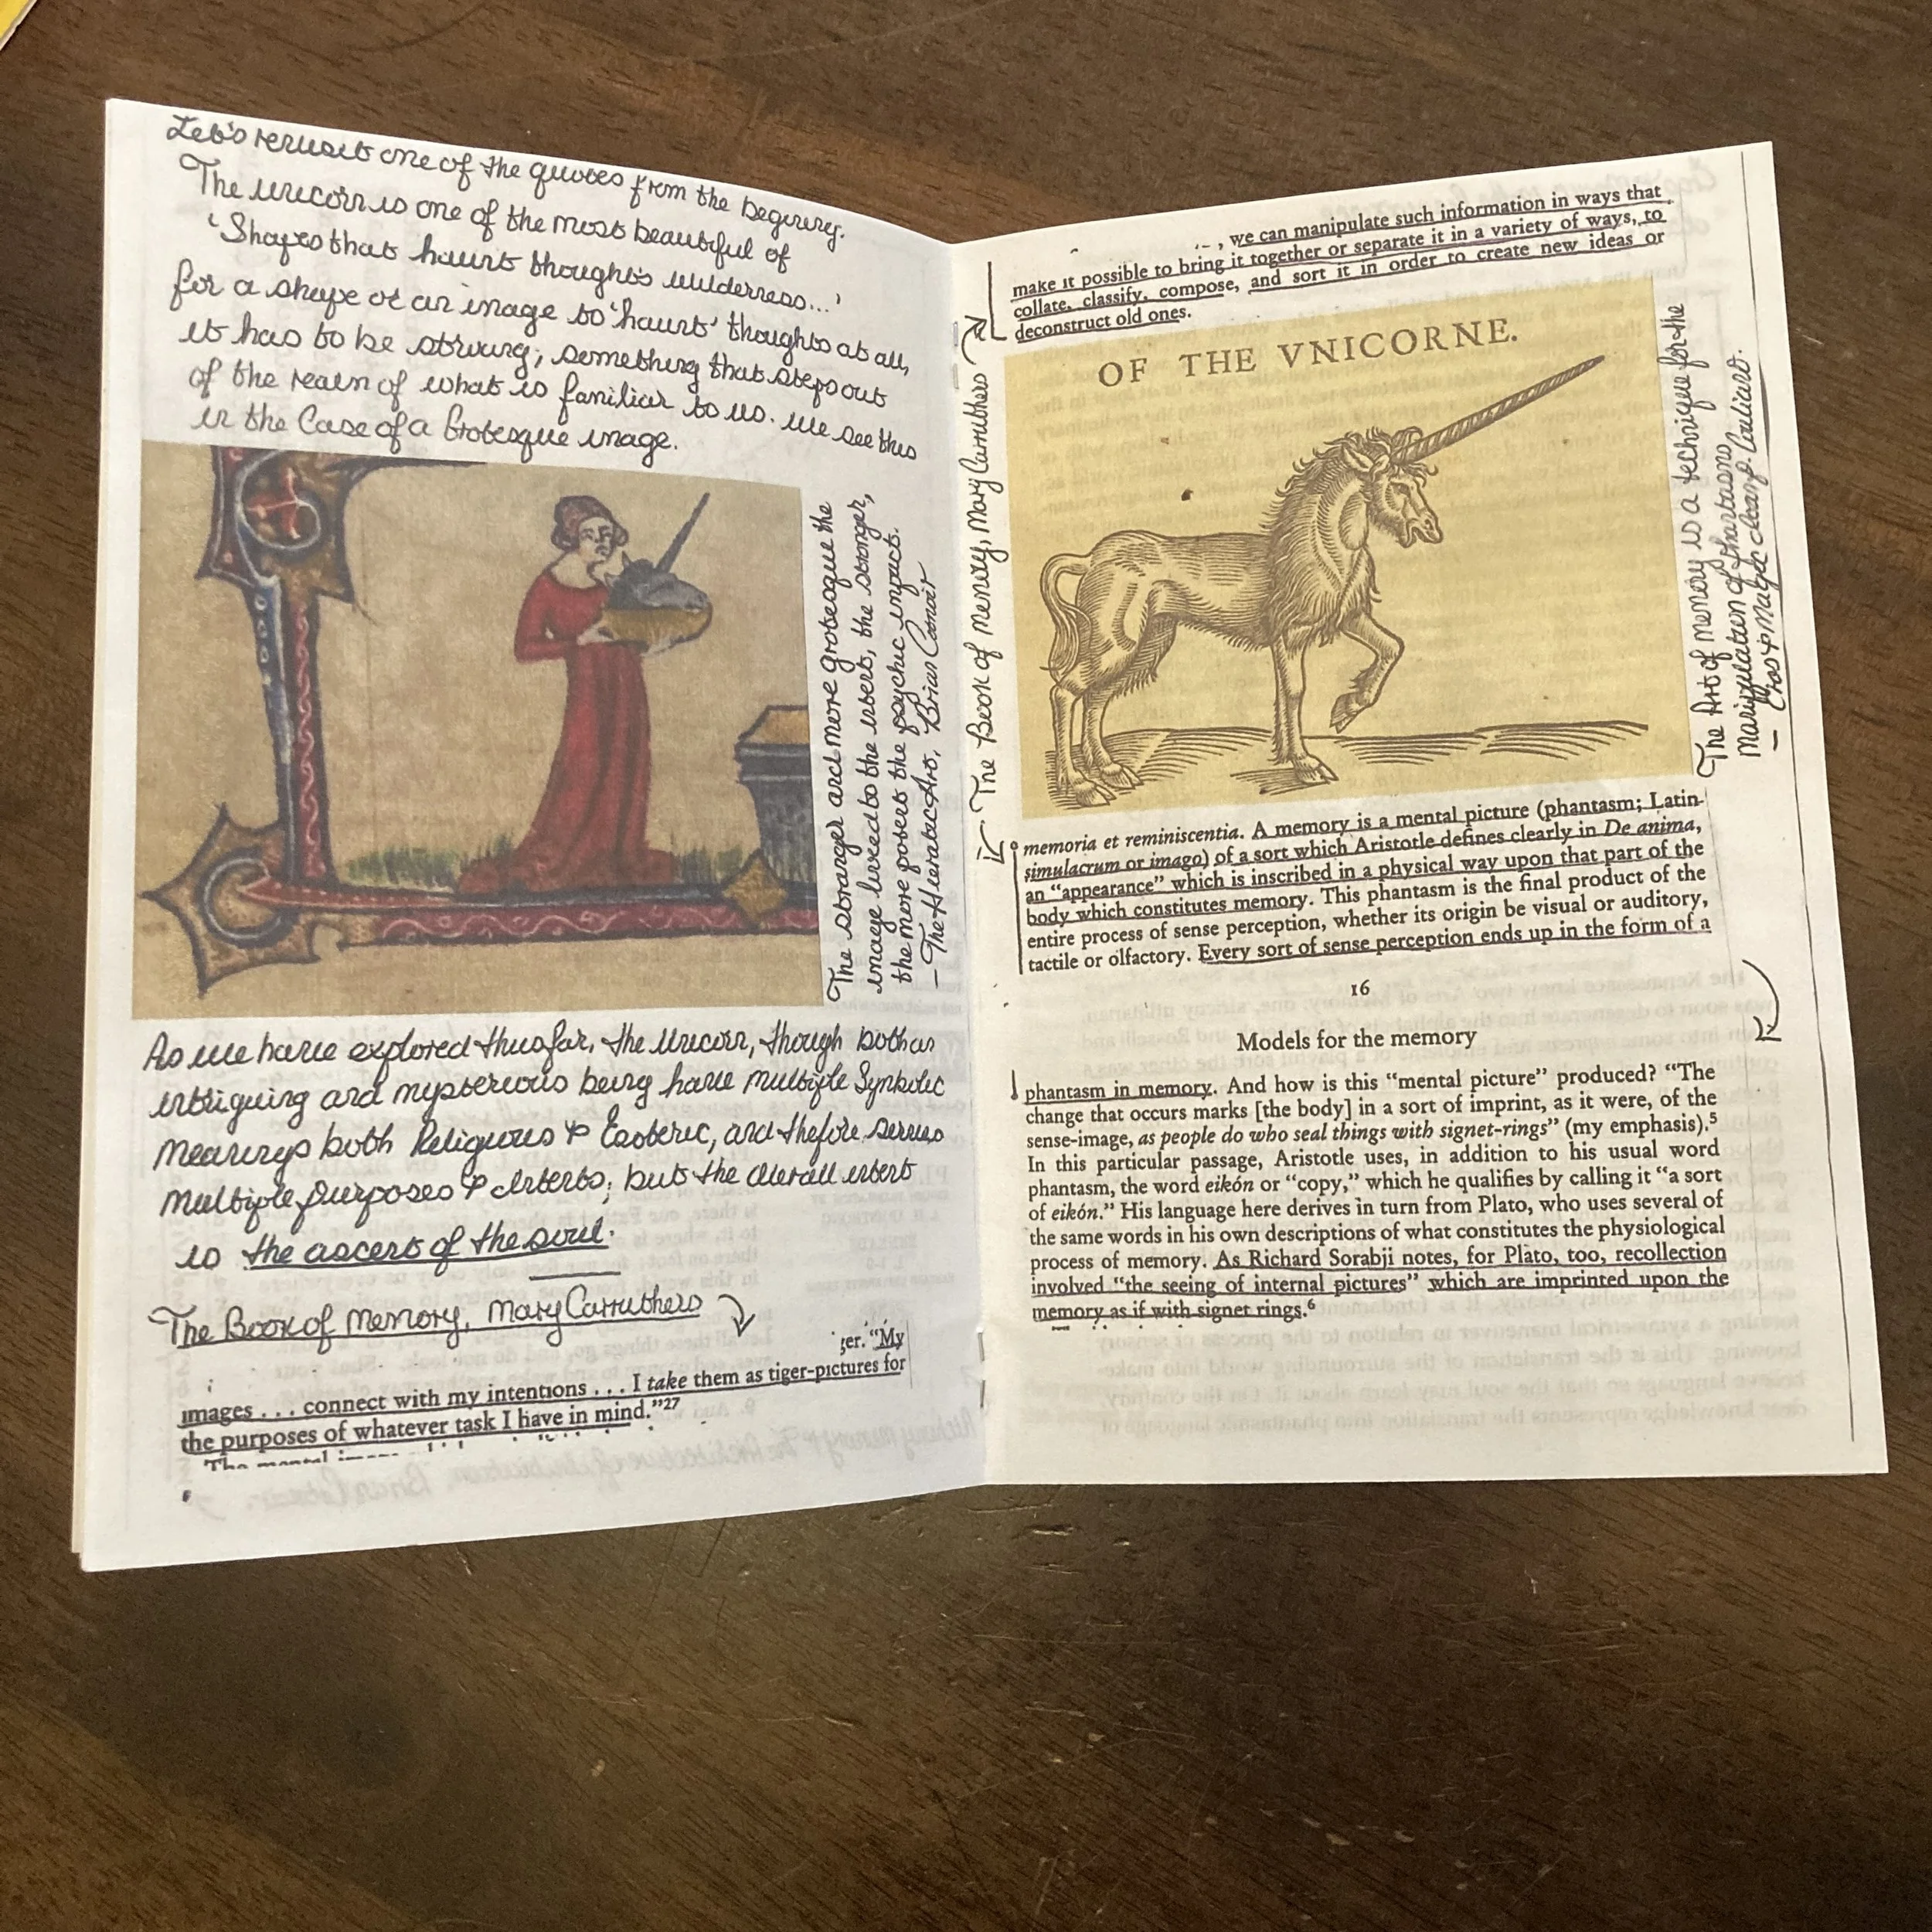 Let's revisit one of the quotes from the beginning.
The unicorn is one of the most beautiful of
'Shapes that haunt thought's wilderness...'
for a shape or an image to 'haunt' thoughts at all,
it has to be strong; something that steps out
of the realm of what is familiar to us. we see this
in the Case of a Grotesque image.
The stranger and more grotesque the
image linked to the intent, the stronger,
the more potent the psychic impact.
— The Hieratic Art, Brian Cotnoir
As we have explored thus far, the Unicorn, though both an
intriguing and mysterious being have multiple Symbolic
meanings both Religious & Esoteric, and thefore serves
multiple purposes & intents; but the overall intent
is the ascent of the soul.
The Book of Memory, Mary Carruthers
ger. "My
images . . . connect with my intentions . . . I take them as tiger-pictures for
the purposes of whatever task I have in mind."27
The mental
The Book of memory, Mary Carruthers
, we can manipulate such information in ways that
make it possible to bring it together or separate it in a variety of ways, to
collate, classify, compose, and sort it in order to create new ideas or
deconstruct old ones.
OF THE VNICORNE.
The Art of memory is a technique for the
manipulation of phantasms
— Eros & Magic Ioan P. Couliano.
memoria et reminiscentia. A memory is a mental picture (phantasm; Latin
simulacrum or imago) of a sort which Aristotle defines clearly in De anima,
an "appearance" which is inscribed in a physical way upon that part of the
body which constitutes memory. This phantasm is the final product of the
entire process of sense perception, whether its origin be visual or auditory,
tactile or olfactory. Every sort of sense perception ends up in the form of a
16
Models for the memory
phantasm in memory. And how is this "mental picture" produced? "The
change that occurs marks [the body] in a sort of imprint, as it were, of the
sense-image, as people do who seal things with signet-rings" (my emphasis).5
In this particular passage, Aristotle uses, in addition to his usual word
phantasm, the word eikón or "copy," which he qualifies by calling it "a sort
of eikón." His language here derives in turn from Plato, who uses several of
the same words in his own descriptions of what constitutes the physiological
process of memory. As Richard Sorabji notes, for Plato, too, recollection
involved "the seeing of internal pictures" which are imprinted upon the
memory as if with signet rings.6